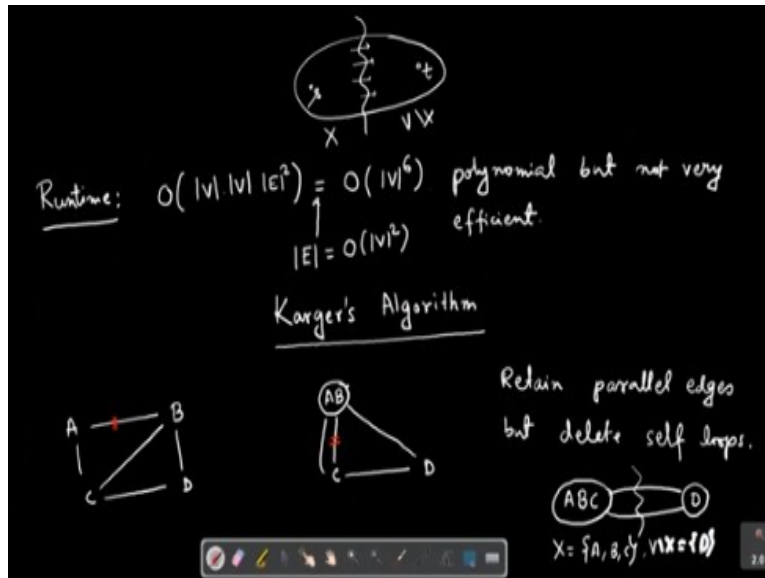 s t
X V\X
Runtime: O(|V|.|V| |E|²) = O(|V|⁶) polynomial but not very
efficient.
|E| = O(|V|²)
Karger's Algorithm
A B
C D
AB
C D
Retain parallel edges
but delete self loops.
ABC D
X = {A, B, C}, V\X = {D}
2.0